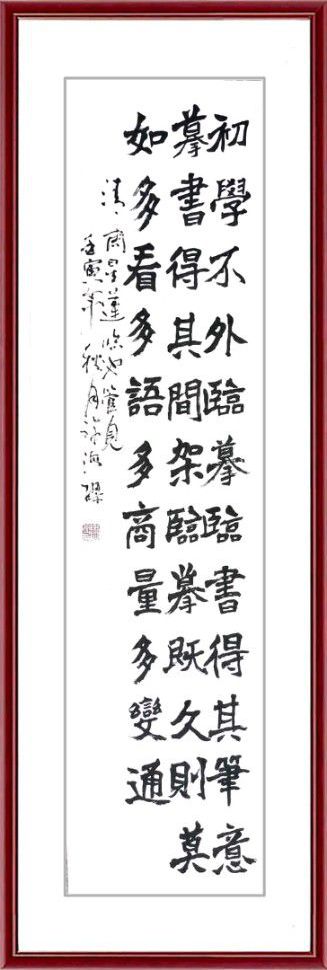 初學不外臨摹臨書得其筆意
摹書得其間架臨摹既久則莫
如多看多語多商量多變通
清、周星蓮臨池管見
壬寅年秋月許海